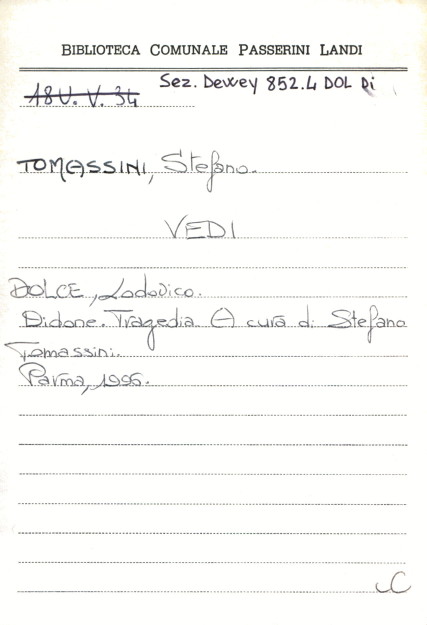 BIBLIOTECA COMUNALE PASSERINI LANDI
18 U. V. 34 Sez. Dewey 852.4 DOL Di
TOMASSINI, Stefano.
VEDI
DOLCE, Lodovico.
Didone. Tragedia. A cura di Stefano
Tomassini.
Parma, 1996.